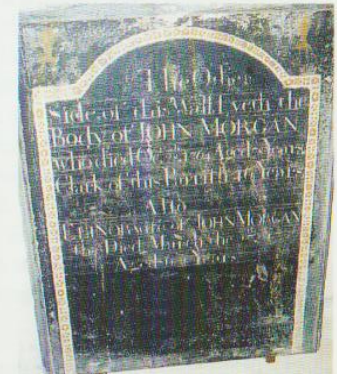 The Other
Side of this Wall Lyeth the
Body of JOHN MORGAN
who died Aged Years
Clark of this Parish Years
Also
ELINOR wife of JOHN MORGAN
Died March the
Aged Years